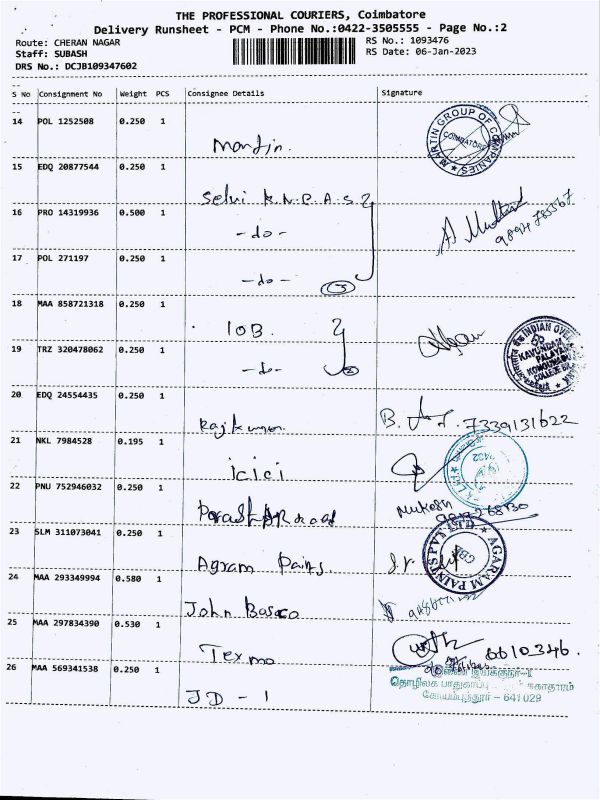 THE PROFESSIONAL COURIERS, Coimbatore
Delivery Runsheet - PCM - Phone No.:0422-3505555 - Page No.:2
Route: CHERAN NAGAR
RS No.: 1093476
Staff: SUBASH
RS Date: 06-Jan-2023
DRS No.: DCJB109347602
S No Consignment No Weight PCS Consignee Details Signature
14 POL 1252508 0.250 1 Martin.
MARTIN GROUP OF COMPANIES COIMBATORE
15 EDQ 20877544 0.250 1 Selvi K.N.C.A.S.
16 PRO 14319936 0.500 1 -do-
17 POL 271197 0.250 1 -do- 3
18 MAA 858721318 0.250 1 IOB.
19 TRZ 320478062 0.250 1 -do- 2
INDIAN KAVUNDAM PALAYAM
20 EDQ 24554435 0.250 1 Rajkumar B. 7339131622
21 NKL 7984528 0.195 1 icici
22 PNU 752946032 0.250 1 Mukesh
23 SLM 311073041 0.250 1 Agram Paints.
AGARAM PAINTS PVT LTD CBE
24 MAA 293349994 0.580 1 John Bosco
25 MAA 297834390 0.530 1 Texmo 6610346.
26 MAA 569341538 0.250 1 JD - 1
இணை இயக்குநர்-I
தொழிலக பாதுகாப்பு சுகாதாரம்
கோயம்புத்தூர் - 641029